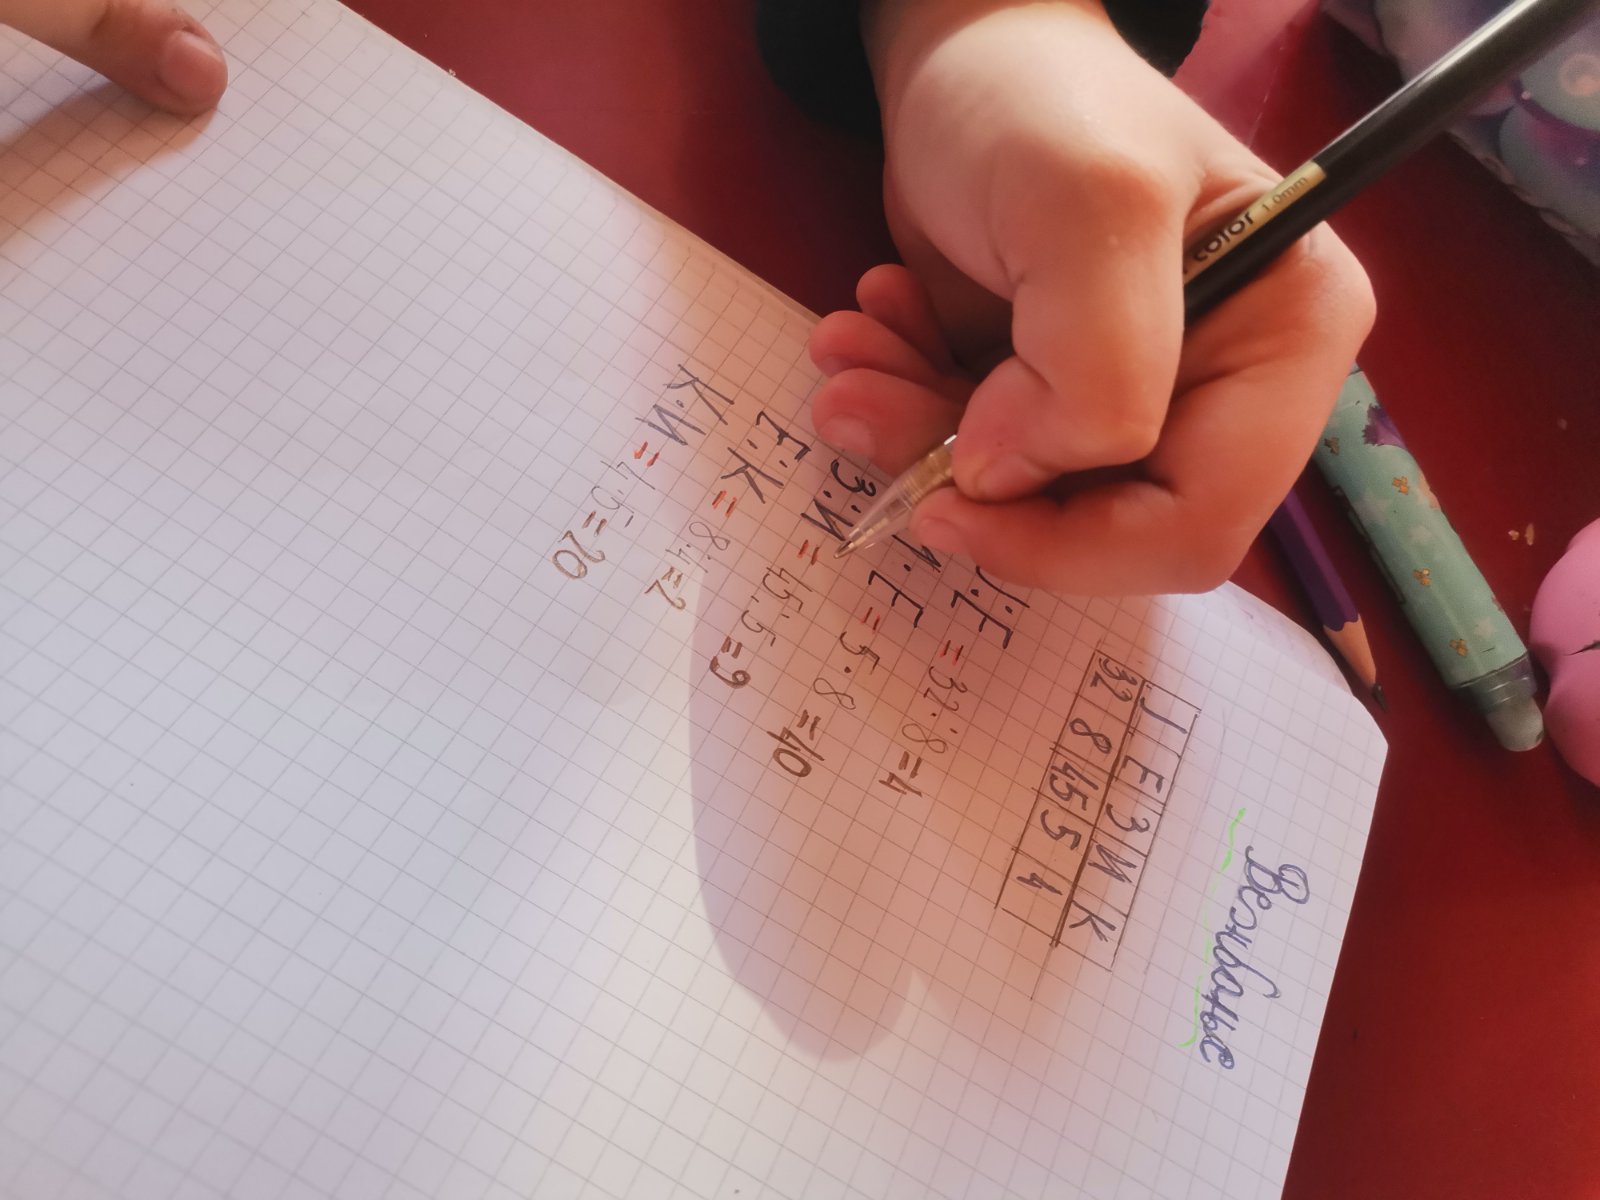 Вежбање
Ј Е З И К
32 8 45 5 4
Ј:Е = 32:8 = 4
И·Е = 5·8 = 40
З:И = 45:5 = 9
Е:К = 8:4 = 2
К·И = 4·5 = 20
color 1.0mm